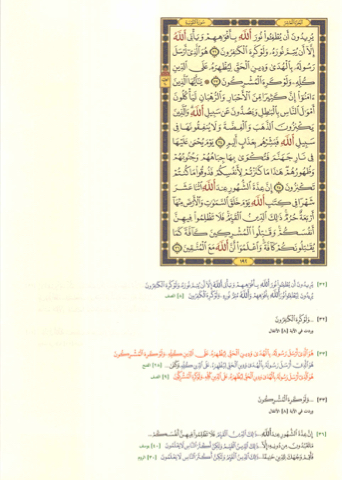 الجزء العاشر
سورة التوبة
يُرِيدُونَ أَن يُطْفِـُٔوا۟ نُورَ ٱللَّهِ بِأَفْوَٰهِهِمْ وَيَأْبَى ٱللَّهُ
إِلَّآ أَن يُتِمَّ نُورَهُۥ وَلَوْ كَرِهَ ٱلْكَٰفِرُونَ ٣٢ هُوَ ٱلَّذِىٓ أَرْسَلَ
رَسُولَهُۥ بِٱلْهُدَىٰ وَدِينِ ٱلْحَقِّ لِيُظْهِرَهُۥ عَلَى ٱلدِّينِ
كُلِّهِۦ وَلَوْ كَرِهَ ٱلْمُشْرِكُونَ ٣٣ يَٰٓأَيُّهَا ٱلَّذِينَ
ءَامَنُوٓا۟ إِنَّ كَثِيرًا مِّنَ ٱلْأَحْبَارِ وَٱلرُّهْبَانِ لَيَأْكُلُونَ
أَمْوَٰلَ ٱلنَّاسِ بِٱلْبَٰطِلِ وَيَصُدُّونَ عَن سَبِيلِ ٱللَّهِ وَٱلَّذِينَ
يَكْنِزُونَ ٱلذَّهَبَ وَٱلْفِضَّةَ وَلَا يُنفِقُونَهَا فِى
سَبِيلِ ٱللَّهِ فَبَشِّرْهُم بِعَذَابٍ أَلِيمٍ ٣٤ يَوْمَ يُحْمَىٰ عَلَيْهَا
فِى نَارِ جَهَنَّمَ فَتُكْوَىٰ بِهَا جِبَاهُهُمْ وَجُنُوبُهُمْ
وَظُهُورُهُمْ هَٰذَا مَا كَنَزْتُمْ لِأَنفُسِكُمْ فَذُوقُوا۟ مَا كُنتُمْ
تَكْنِزُونَ ٣٥ إِنَّ عِدَّةَ ٱلشُّهُورِ عِندَ ٱللَّهِ ٱثْنَا عَشَرَ
شَهْرًا فِى كِتَٰبِ ٱللَّهِ يَوْمَ خَلَقَ ٱلسَّمَٰوَٰتِ وَٱلْأَرْضَ مِنْهَآ
أَرْبَعَةٌ حُرُمٌ ذَٰلِكَ ٱلدِّينُ ٱلْقَيِّمُ فَلَا تَظْلِمُوا۟ فِيهِنَّ
أَنفُسَكُمْ وَقَٰتِلُوا۟ ٱلْمُشْرِكِينَ كَآفَّةً كَمَا
يُقَٰتِلُونَكُمْ كَآفَّةً وَٱعْلَمُوٓا۟ أَنَّ ٱللَّهَ مَعَ ٱلْمُتَّقِينَ ٣٦
١٩٢
(٣٢) يُرِيدُونَ أَن يُطْفِـُٔوا۟ نُورَ ٱللَّهِ بِأَفْوَٰهِهِمْ وَيَأْبَى ٱللَّهُ إِلَّآ أَن يُتِمَّ نُورَهُۥ وَلَوْ كَرِهَ ٱلْكَٰفِرُونَ
يُرِيدُونَ لِيُطْفِـُٔوا۟ نُورَ ٱللَّهِ بِأَفْوَٰهِهِمْ وَٱللَّهُ مُتِمُّ نُورِهِۦ وَلَوْ كَرِهَ ٱلْكَٰفِرُونَ [٨] الصف
(٣٢) ..وَلَوْ كَرِهَ ٱلْكَٰفِرُونَ
(٣٣) هُوَ ٱلَّذِىٓ أَرْسَلَ رَسُولَهُۥ بِٱلْهُدَىٰ وَدِينِ ٱلْحَقِّ لِيُظْهِرَهُۥ عَلَى ٱلدِّينِ كُلِّهِۦ وَلَوْ كَرِهَ ٱلْمُشْرِكُونَ
هُوَ ٱلَّذِىٓ أَرْسَلَ رَسُولَهُۥ بِٱلْهُدَىٰ وَدِينِ ٱلْحَقِّ لِيُظْهِرَهُۥ عَلَى ٱلدِّينِ كُلِّهِۦ وَكَفَىٰ.. [٢٨] الفتح
هُوَ ٱلَّذِىٓ أَرْسَلَ رَسُولَهُۥ بِٱلْهُدَىٰ وَدِينِ ٱلْحَقِّ لِيُظْهِرَهُۥ عَلَى ٱلدِّينِ كُلِّهِۦ وَلَوْ كَرِهَ ٱلْمُشْرِكُونَ [٩] الصف
(٣٣) ..وَلَوْ كَرِهَ ٱلْمُشْرِكُونَ
وردت في الآية [٨] الأنفال
(٣٦) إِنَّ عِدَّةَ ٱلشُّهُورِ عِندَ ٱللَّهِ.. ذَٰلِكَ ٱلدِّينُ ٱلْقَيِّمُ فَلَا تَظْلِمُوا۟ فِيهِنَّ أَنفُسَكُمْ..
مَا تَعْبُدُونَ مِن.. ذَٰلِكَ ٱلدِّينُ ٱلْقَيِّمُ وَلَٰكِنَّ أَكْثَرَ ٱلنَّاسِ لَا يَعْلَمُونَ [٤٠] يوسف
فَأَقِمْ وَجْهَكَ لِلدِّينِ حَنِيفًا.. ذَٰلِكَ ٱلدِّينُ ٱلْقَيِّمُ وَلَٰكِنَّ أَكْثَرَ ٱلنَّاسِ لَا يَعْلَمُونَ [٣٠] الروم